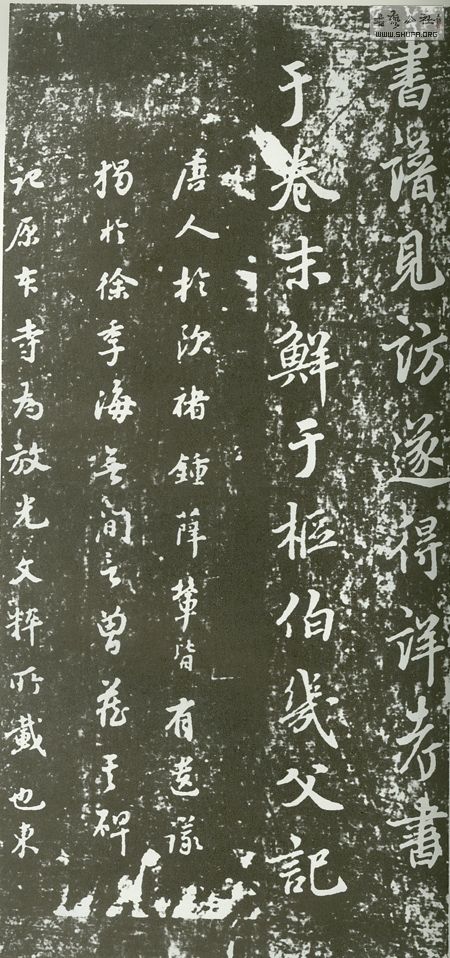 書譜見訪遂得詳考書
于卷末鮮于樞伯幾父記
唐人於歐褚鍾薛輩皆有遺議
獨於徐季海無間言曾碑
記原寺為放光文粹所載也東
WWW.SHUFA.ORG